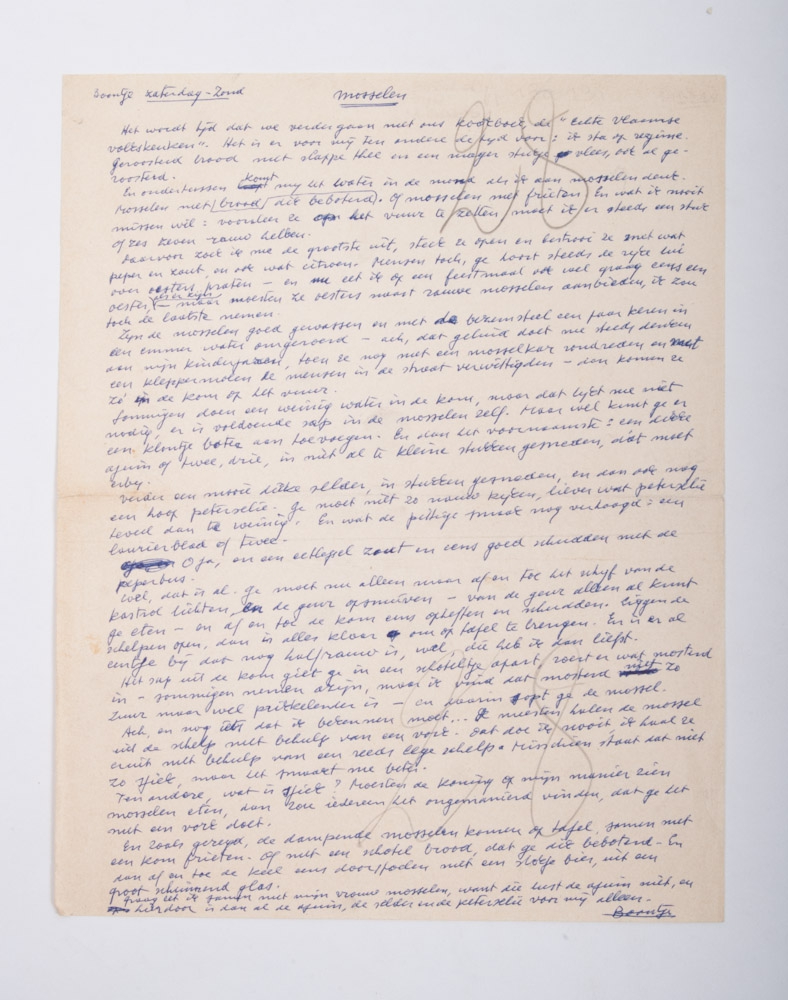 Boontje zaterdag-Zond
Mosselen
28
Het wordt tijd dat we verder gaan met ons kookboek, de "Echte Vlaamse
volkskeuken". Het is er voor mij ten andere de tijd voor: ik sta op regime.
geroosterd brood met slappe thee en een mager stukje vlees, ook al ge-
roosterd.
En ondertussen komt mij het water in de mond als ik aan mosselen denk.
Mosselen met brood dik beboterd. Of mosselen met frieten. En wat ik nooit
missen wil: voordien ze op het vuur te zetten, moet ik er steeds een stuk
of zes zeven rauw hebben.
Daarvoor zoek ik me de grootste uit, steek ze open en bestrooi ze met wat
peper en zout, en ook wat citroen. Mensen toch, ge hoort steeds de rijke lui
over oesters praten – en eet ik op een feestmaal ook wel graag eens een
oester, – maar moesten ze oesters naast rauwe mosselen aanbieden, ik zou
toch de laatste nemen.
Zijn de mosselen goed gewassen en met de bezemsteel een paar keren in
een emmer water omgeroerd – ach, dat geluid doet me steeds denken
aan mijn kinderjaren, toen ze nog met een mosselkar rondreden en met
een kleppermolen de mensen in de straat verwittigden – dan komen ze
zó in de kom op het vuur.
Sommigen doen een weinig water in de kom, maar dat lijkt me niet
nodig, er is voldoende sap in de mosselen zelf. Maar wel kunt ge er
een klontje boter aan toevoegen. En dan het voornaamste: een dikke
ajuin of twee, drie, in niet al te kleine stukken gesneden, dat moet
erbij.
Verder een mooie dikke selder, in stukken gesneden, en dan ook nog
een hoop peterselie. Ge moet niet zo nauw kijken, liever wat peterselie
teveel dan te weinig. En wat de pittige smaak nog verhoogd: een
laurierblad of twee.
O ja, en een eetlepel zout en eens goed schudden met de
peperbus.
Wel, dat is al. Ge moet nu alleen maar af en toe het schijf van de
kastrol lichten en de geur opsnuiven – van de geur alleen al kunt
ge eten – en af en toe de kom eens opheffen en schudden. Liggen de
schelpen open, dan is alles klaar om op tafel te brengen. En is er al
eentje bij dat nog half rauw is, wel, die heb ik dan liefst.
Het sap uit de kom giet ge in een schoteltje apart, roert er wat mosterd
in – sommigen nemen azijn, maar ik vind dat mosterd niet zo
zuur maar wel prikkelender is – en daarin sopt ge de mossel.
Ach, en nog iets dat ik bekennen moet... de meesten halen de mossel
uit de schelp met behulp van een vork. Dat doe ik nooit, ik haal ze
eruit met behulp van een reeds lege schelp. Misschien staat dat niet
zo sjiek, maar het smaakt me beter.
Ten andere, wat is sjiek? Moesten de koning op mijn manier zien
mosselen eten, dan zou iedereen het ongemanierd vinden, dat ge het
met een vork doet.
En zoals gezegd, de dampende mosselen komen op tafel, samen met
een kom frieten. Of met een schotel brood, dat ge dik beboterd. En
dan af en toe de keel eens doorspoelen met een slokje bier, uit een
groot schuimend glas.
graag eet ik samen met mijn vrouw mosselen, want die lust de ajuin niet, en
hierdoor is dan al de ajuin, de selder en de peterselie voor mij alleen.
Boontje